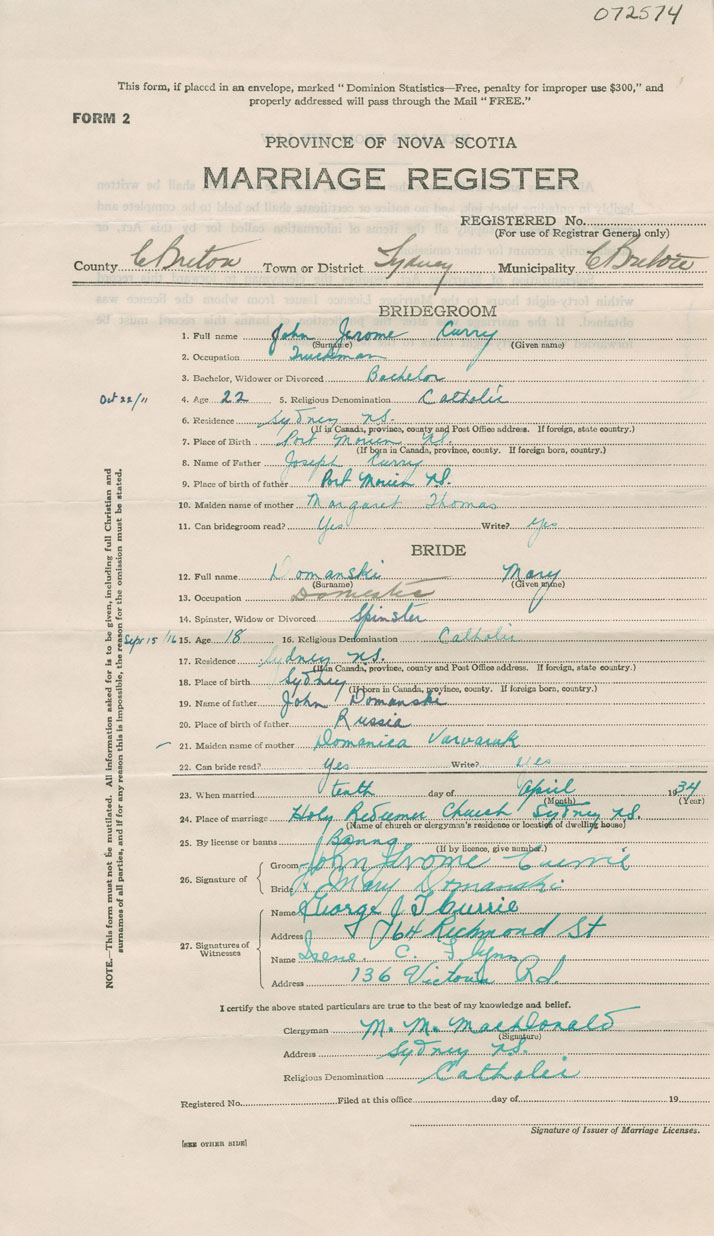 072574
This form, if placed in an envelope, marked "Dominion Statistics—Free, penalty for improper use $300," and
properly addressed will pass through the Mail "FREE."
FORM 2
PROVINCE OF NOVA SCOTIA
MARRIAGE REGISTER
REGISTERED No.
(For use of Registrar General only)
County C Breton Town or District Sydney Municipality C Breton
BRIDEGROOM
1. Full name John Jerome Curry
(Surname) (Given name)
2. Occupation Truckman
3. Bachelor, Widower or Divorced Bachelor
Oct 22/11 4. Age 22 5. Religious Denomination Catholic
6. Residence Sydney N.S.
(If in Canada, province, county and Post Office address. If foreign, state country.)
7. Place of Birth Port Morien N.S.
(If born in Canada, province, county. If foreign born, country.)
8. Name of Father Joseph Curry
9. Place of birth of father Port Morien N.S.
10. Maiden name of mother Margaret Thomas
11. Can bridegroom read? Yes Write? Yes
BRIDE
12. Full name Domanski Mary
(Surname) (Given name)
13. Occupation Domestic
14. Spinster, Widow or Divorced Spinster
Sept 15/16 15. Age 18 16. Religious Denomination Catholic
17. Residence Sydney N.S.
(If in Canada, province, county and Post Office address. If foreign, state country.)
18. Place of birth Sydney
(If born in Canada, province, county. If foreign born, country.)
19. Name of father John Domanski
20. Place of birth of father Russia
21. Maiden name of mother Domanica Varvaruk
22. Can bride read? Yes Write? Yes
23. When married tenth day of April 1934
(Month) (Year)
24. Place of marriage Holy Redeemer Church Sydney N.S.
(Name of church or clergyman's residence or location of dwelling house)
25. By license or banns Banns
(If by licence, give number.)
26. Signature of
Groom John Jerome Currie
Bride X Mary Domanski
27. Signatures of Witnesses
Name George J T Currie
Address 764 Richmond St
Name Irene C. Flynn
Address 136 Victoria Rd.
I certify the above stated particulars are true to the best of my knowledge and belief.
Clergyman M. M. MacDonald
(Signature)
Address Sydney N.S.
Religious Denomination Catholic
Registered No. Filed at this office day of 19
Signature of Issuer of Marriage Licenses.
[SEE OTHER SIDE]
NOTE.—This form must not be mutilated. All information asked for is to be given, including full Christian and
surnames of all parties, and if for any reason this is impossible, the reason for the omission must be stated.